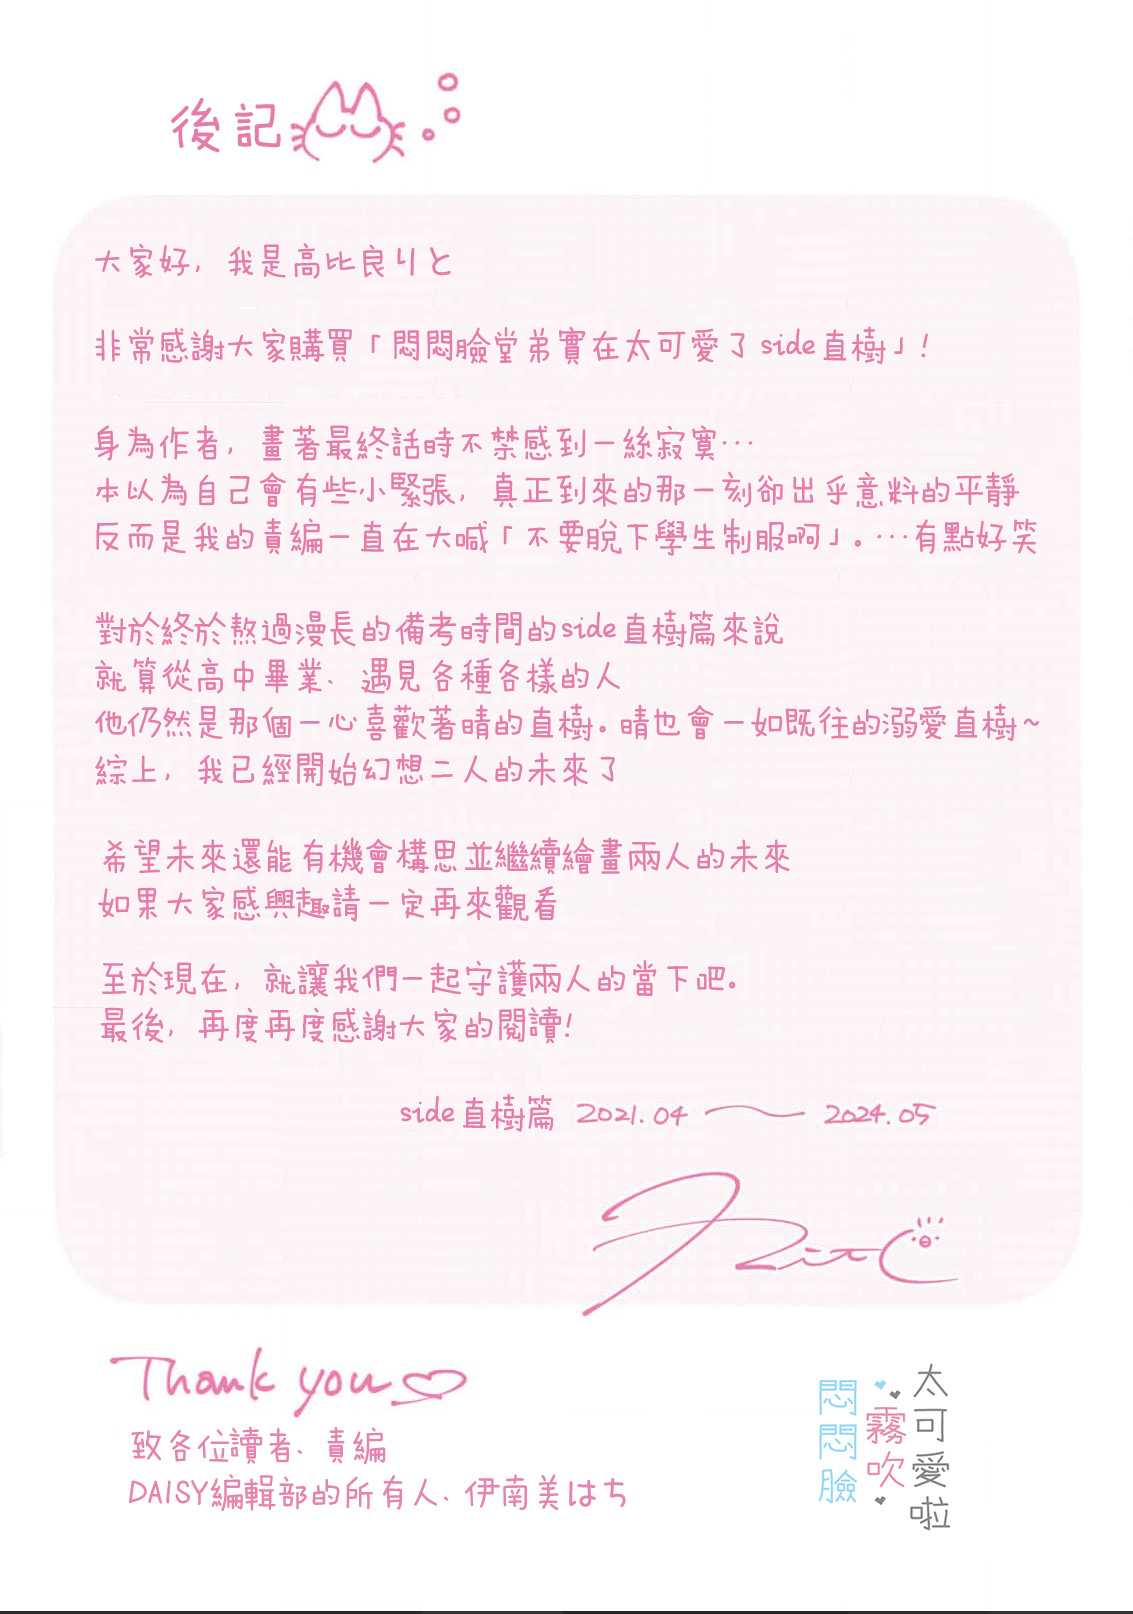 後記
大家好，我是高比良りと
非常感謝大家購買「悶悶臉堂弟實在太可愛了side直樹」！
身為作者，畫著最終話時不禁感到一絲寂寞…
本以為自己會有些小緊張，真正到來的那一刻卻出乎意料的平靜
反而是我的責編一直在大喊「不要脫下學生制服啊」。…有點好笑
對於終於熬過漫長的備考時間的side直樹篇來說
就算從高中畢業、遇見各種各樣的人
他仍然是那個一心喜歡著晴的直樹。晴也會一如既往的溺愛直樹~
綜上，我已經開始幻想二人的未來了
希望未來還能有機會構思並繼續繪畫兩人的未來
如果大家感興趣請一定再來觀看
至於現在，就讓我們一起守護兩人的當下吧。
最後，再度再度感謝大家的閱讀！
side直樹篇 2021.04 ~ 2024.05
Thank you
致各位讀者、責編
DAISY編輯部的所有人、伊南美はち
太可愛啦
霧吹
悶悶臉